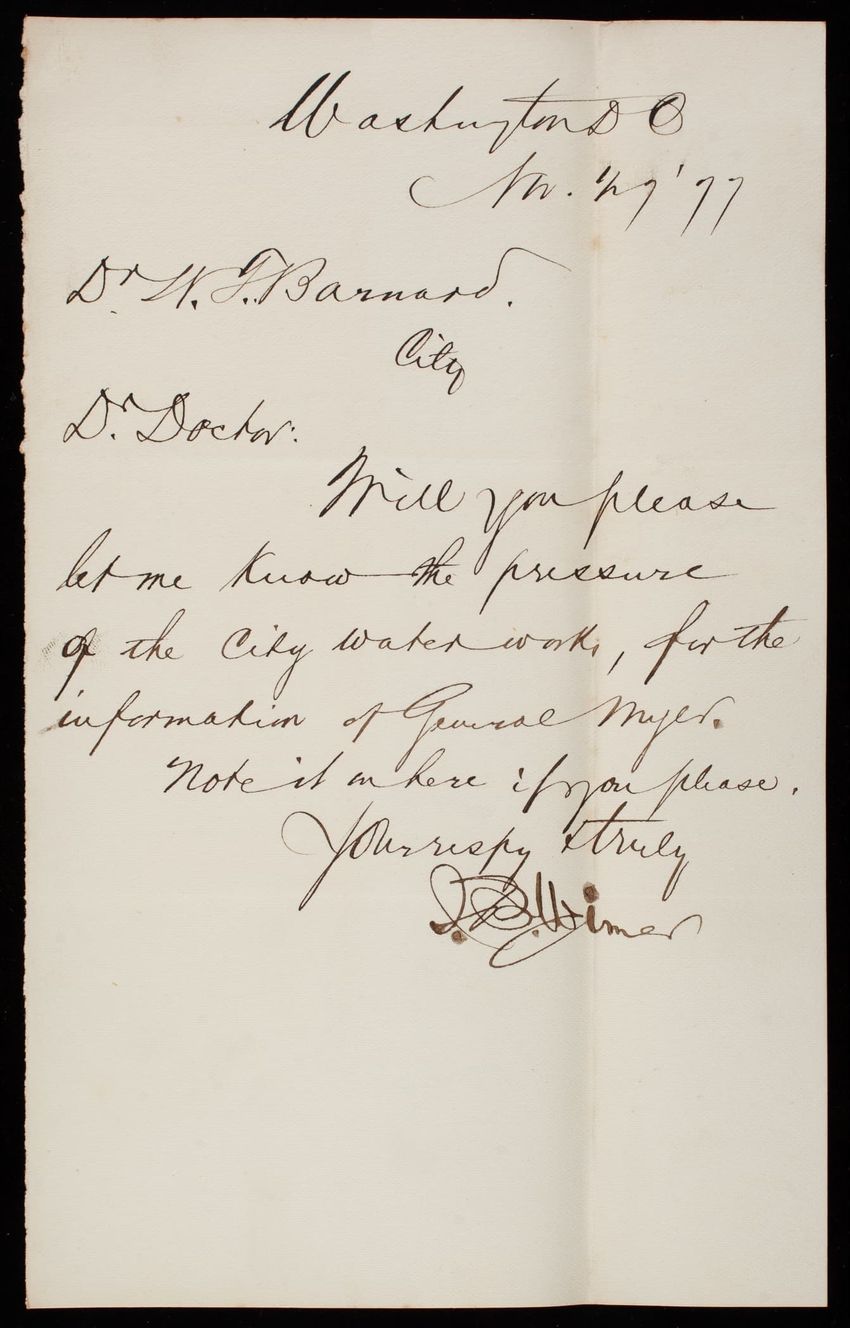 Washington D C
Nov. 29' 77
Dr. W. T. Barnard.
City
Dr. Doctor:
Will you please
let me know the pressure
of the City water works, for the
information of General Myer.
Note it on here if you please.
Your respy & truly
J. B. Wimer